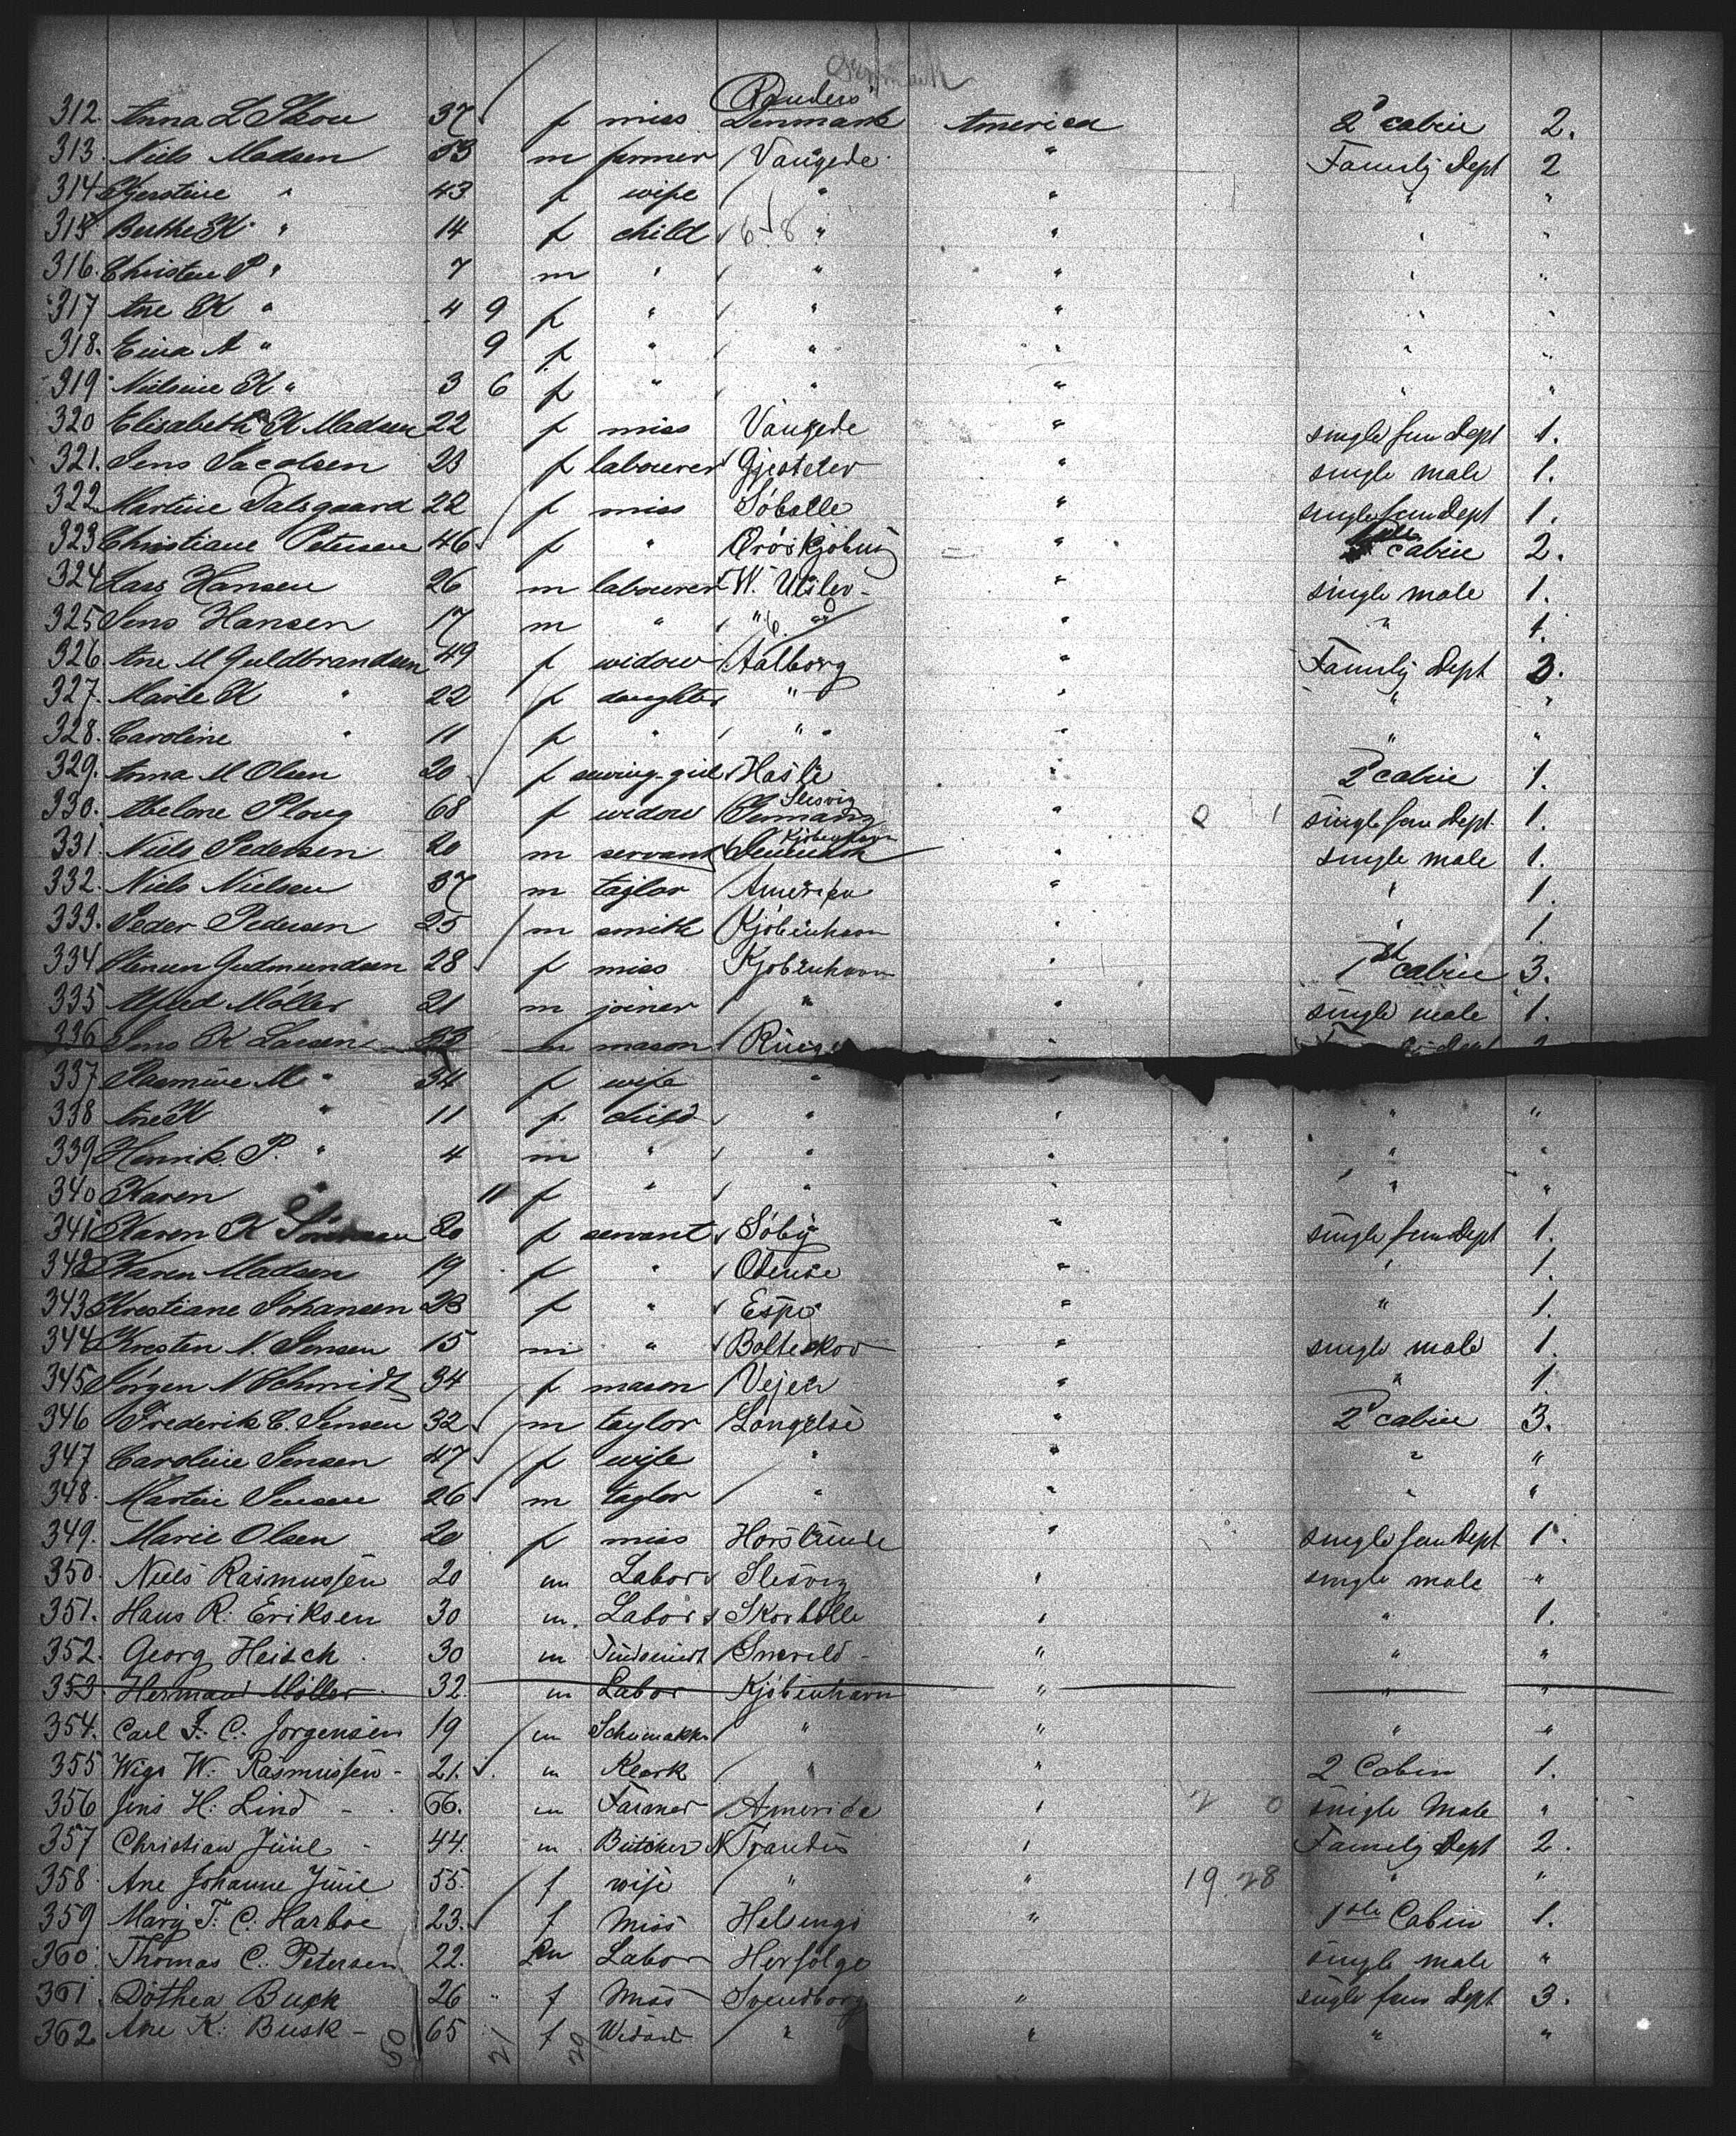 Denmark
Randers
312. Anna L Skou 37 f miss Denmark America 2d cabin 2.
313. Niels Madsen 53 m farmer Vangede " Family Dept 2
314 Kjerstine " 43 f wife " " " "
315 Berthe K " 14 f child 6 8 " " " "
316. Christen P " 7 m " " " " "
317 Ane K " 4 9 f " " " " "
318. Eina A " 9 f " " " " "
319 Nielsine K " 3 6 f " " " " "
320 Elisabeth K Madsen 22 f miss Vangede " single fem Dept 1.
321. Jens Jacobsen 23 f labourer Gjestelev " single male 1.
322 Martine Dalsgaard 22 f miss Søballe " single fem Dept 1.
323 Christiane Petersen 46 f " Ørøskjøbing " cabin 2.
324 Lars Hansen 26 m labourer W. Ulslev " single male 1.
325 Jens Hansen 17 m " " " " 1.
326. Ane M Guldbrandsen 49 f widow Aalborg " Family Dept 3.
327. Marie K " 22 f daughter " " " "
328. Caroline " 11 f " " " " "
329. Anna M Olsen 20 f sewing-girl Hasle " 2d cabin 1.
Slesvig
330. Abelone Ploug 68 f widow Germany " 0 1 single fem Dept 1.
Kjøbenhavn
331. Niels Pedersen 20 m servant Denmark " single male 1.
332. Niels Nielsen 37 m taylor Amerika " 1.
333. Peder Pedersen 25 m smith Kjøbenhavn " " 1.
334 Gudmundsen 28 f miss Kjøbenhavn " 1st cabin 3.
335 Alfred Møller 21 m joiner " " single male 1.
336 Jens K Larsen 33 m mason "
337 Rasmine M " 34 f wife " "
338 Ane K " 11 f child " " " "
339 Henrik P. " 4 m " " " " "
340 Karen " 11 f " " " " "
341 Karen K 20 f servant Søby " single fem Dept 1.
342 Karen Madsen 19 f " Odense " " 1.
343 Krestiane Johansen 23 f " Espe " " 1.
344 Kresten N. Jensen 15 m " Bolteskov " single male 1.
345 Jørgen N Schmidt 34 f mason Vejen " " 1.
346 Frederik C. Jensen 32 m taylor Longelse " 2d cabin 3.
347 Caroline Jensen 47 f wife " " " "
348. Martin Jensen 26 m taylor " " " "
349. Marie Olsen 20 f miss Horslunde " single fem Dept 1.
350. Niels Rasmussen 20 m Labor Slesvig " single male "
351. Hans R. Eriksen 30 m. Labor Skorbølle " " 1.
352. Georg Heisch 30 m Snevild " " "
353. Herman Møller 32. m Labor Kjøbenhavn " " "
354. Carl F. C. Jørgensen 19 m Schumakker " " " "
355 Wigo W. Rasmussen - 21. m Klerk " " 2 Cabin 1.
356 Jens H. Lind - 66. m Farmer Amerika " 2 0 single Male "
357 Christian Juul - 44. m Butcher Trandes " Family Dept 2.
358 Ane Johanne Juul 55. f wife " " 19 28 " "
359 Mary T. C. Harboe 23. f Miss Helsingø " 1ste Cabin 1.
360. Thomas C. Petersen 22. m Labor Herfølge single male "
361. Dothea Busk 26 " f Miss Svendborg " single fem dept 3.
362 Ane K. Busk - 65 f Widow " " " "
50 21 29